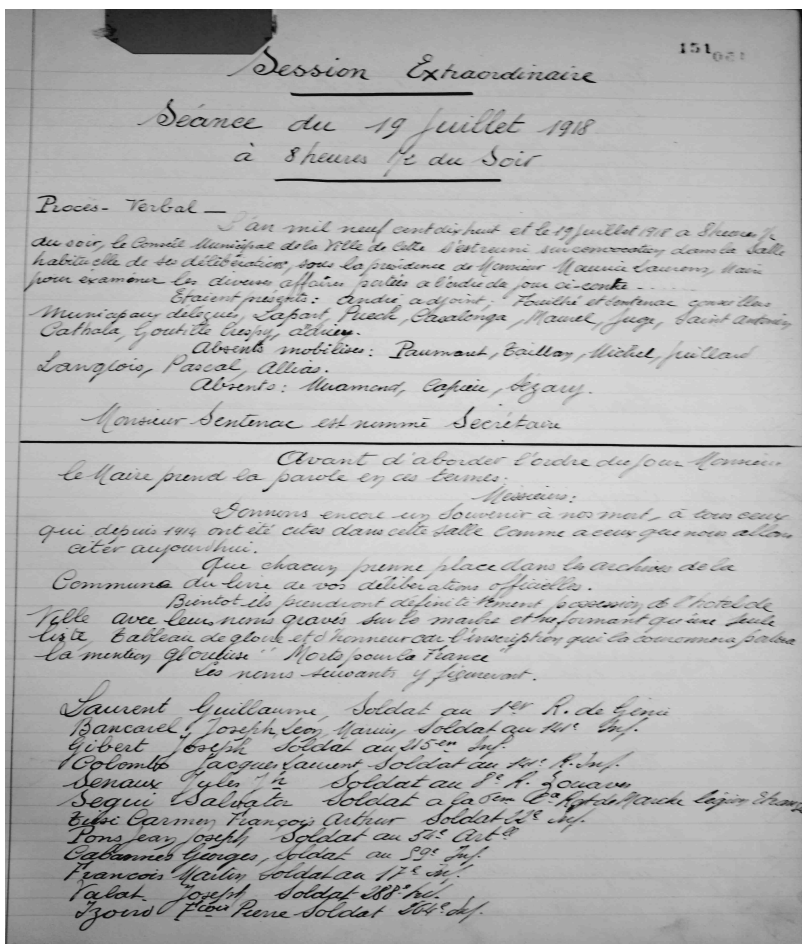 151
Session Extraordinaire
Séance du 19 Juillet 1918
à 8 heures ½ du Soir
Procès-Verbal —
L'an mil neuf cent dix huit et le 19 juillet 1918 a 8 heures ½
du soir, le Conseil Municipal de la Ville de Cette s'est reuni sur convocation dans la Salle
habituelle de ses délibérations, sous la présidence de Monsieur Maurice Laurens, Maire
pour examiner les diverses affaires portées à l'ordre du jour ci-contre
Etaient présents: André adjoint; Fouilhé et Sentenac conseillers
Municipaux délégués, Lapart, Puech, Casalonga, Maurel, Juge, Saint Antonin
Cathala, Goutille Crespy,
Absents mobilisés: Paumant, Taillan, Michel, Juillard
Langlois, Pascal, Allias.
Absents: Capieu, Sézary.
Monsieur Sentenac est nommé Secrétaire
Avant d'aborder l'ordre du jour Monsieur
le Maire prend la parole en ces termes:
Messieurs:
Donnons encore un Souvenir à nos mort, à tous ceux
qui depuis 1914 ont été cités dans cette salle comme a ceux que nous allons
citer aujourd'hui.
Que chacun prenne place dans les archives de la
Commune du livre de vos délibérations officielles.
Bientot ils prendront définitivement possession de l'hotel de
Ville avec leur noms gravés sur le marbre et ne formant qu'une seule
liste, tableau de gloire et d'honneur car l'inscription qui la couronnera portera
la mention glorieuse "Morts pour la France"
Les noms suivants y figureront.
Laurent Guillaume, Soldat au 1er R. de Génie
Bancarel, Joseph, Léon, Marius, Soldat au 141e Inf.
Gibert Joseph Soldat au 215em Inf.
Colombo Jacques Laurent Soldat au 141e R. Inf.
Senaux Jules Jh Soldat au 8e R. Zouaves
Segui Salvator Soldat a la 5em Cie Rgt de Marche légion Etrang
Carmen François Arthur Soldat 22e Inf.
Pons Jean Joseph Soldat au 54e Artie
Cabannes Georges, Soldat au 59e Inf.
Francois Martin Soldat au 17e Inf.
Valat Joseph Soldat 288e Inf.
Izoird Fcois Pierre Soldat 264e Inf.